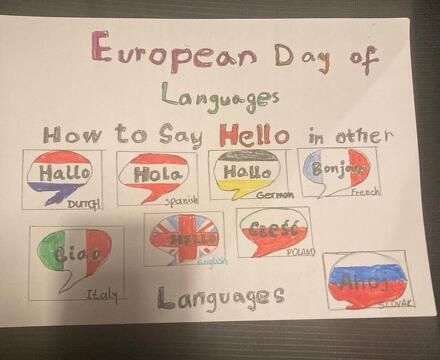 European Day of
Languages
How to Say Hello in other
Hallo
DUTCH
Hola
Spanish
Hallo
German
Bonjour
French
Ciao
Italy
HELLO
English
Cześć
POLAND
Ahoj
SLOVAK
Languages